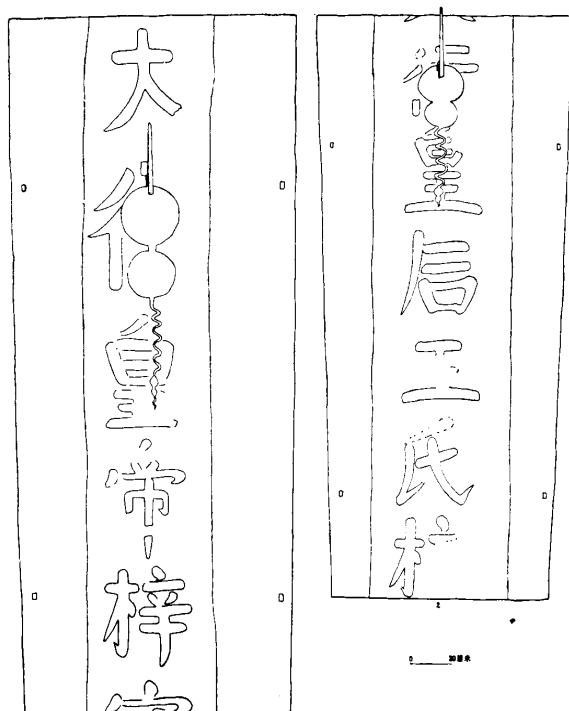 大行皇帝梓宮
行皇后王氏梓
2
0 30厘米